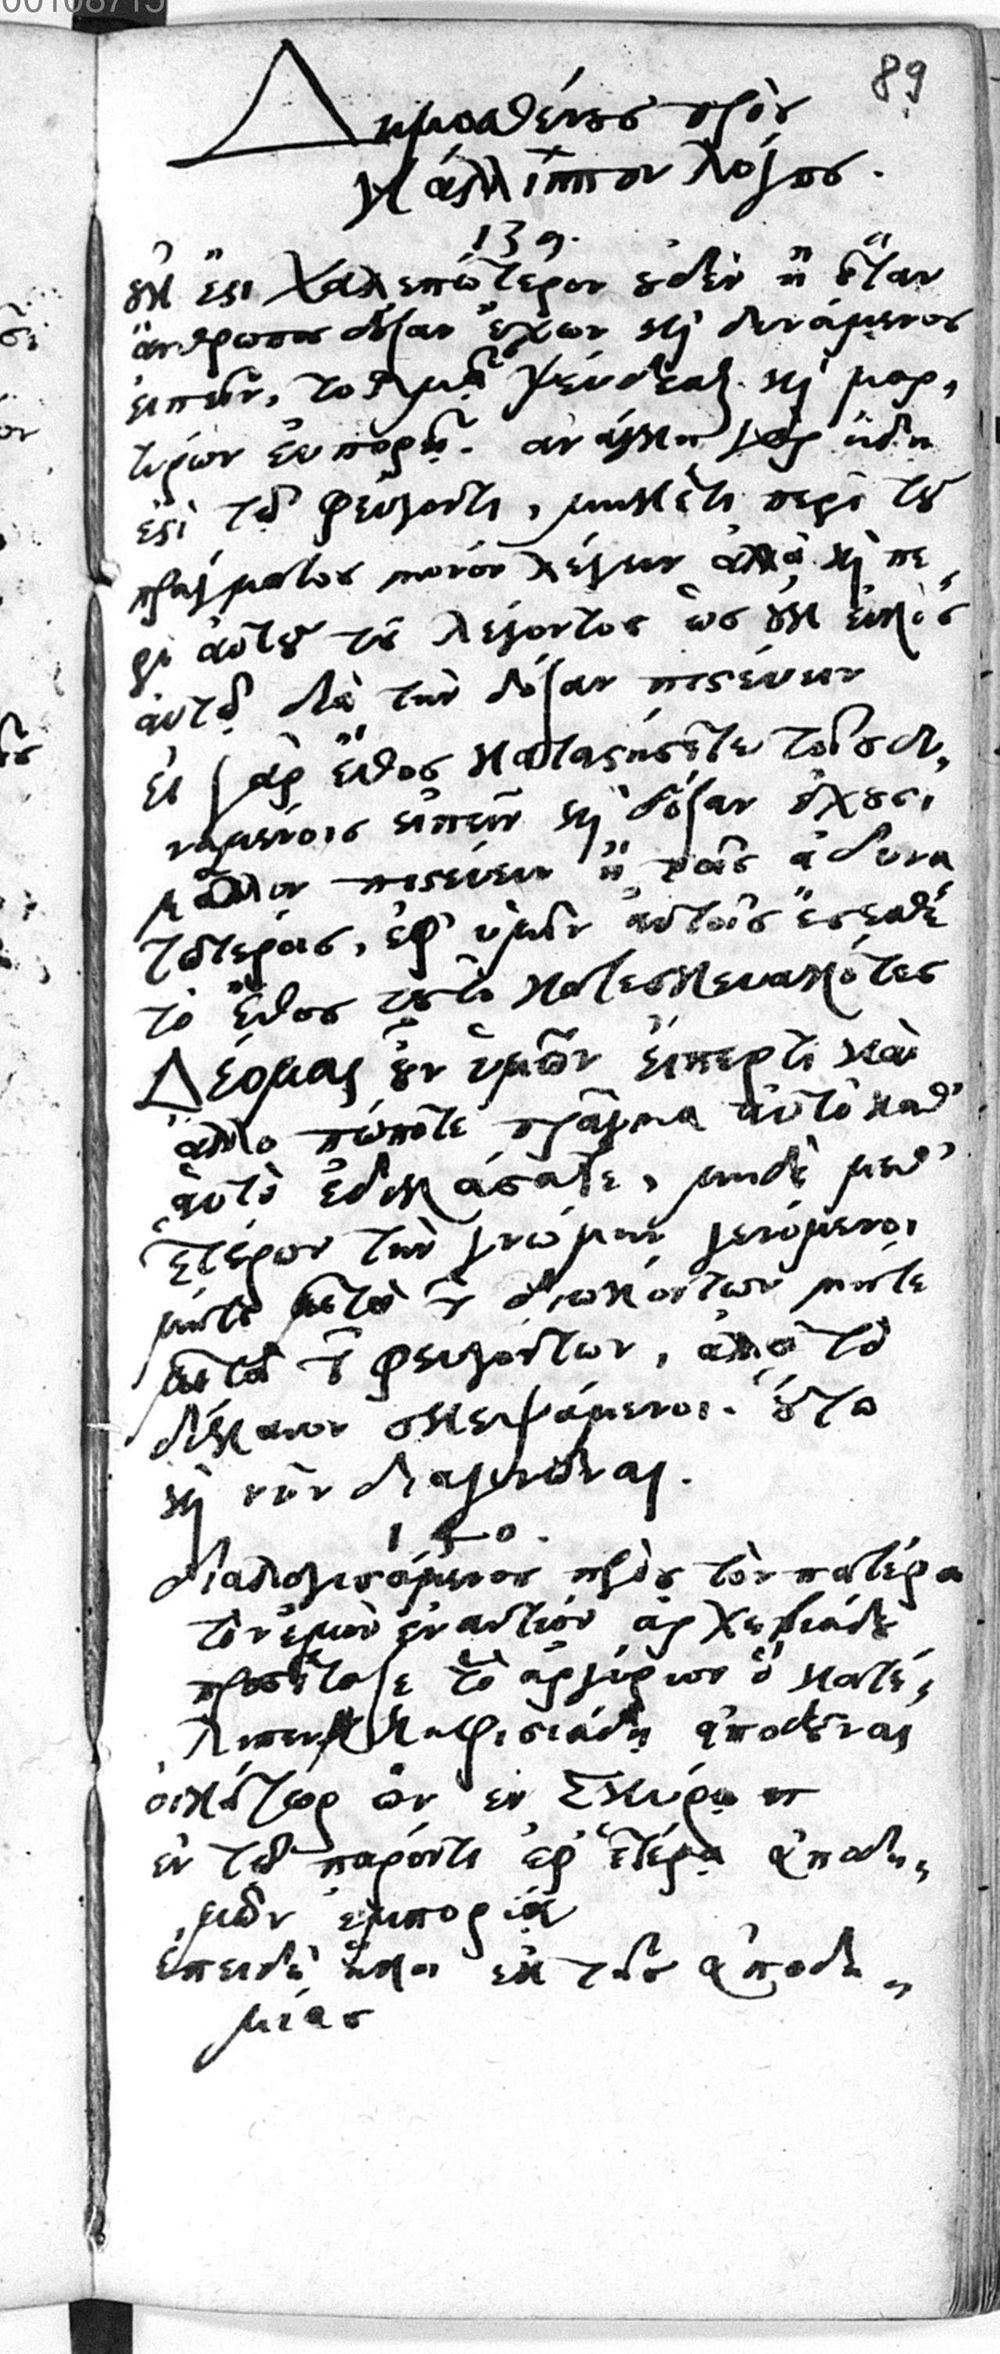 00108715
89
Δημοσθένους πρὸς
Κάλλιππον λόγος.
139.
οὐκ ἔστι χαλεπώτερον οὐδὲν ἢ ὅταν
ἄνθρωπος δόξαν ἔχων καὶ δυνάμενος
εἰπεῖν, τολμᾷ ψεύδεσθαι καὶ μαρ,
τύρων εὐπορῇ. ἀνάγκη γὰρ ἤδη
ἐστὶ τῷ φεύγοντι, μηκέτι περὶ τοῦ
πράγματος μόνον λέγειν ἀλλὰ καὶ πε
ρὶ αὐτοῦ τοῦ λέγοντος ὡς οὐκ εἰκὸς
αὐτῷ διὰ τὴν δόξαν πιστεύειν
εἰ γὰρ ἔθος καταστήσετε τοῖς δυ,
ναμένοις εἰπεῖν καὶ δόξαν ἔχουσι
μᾶλλον πιστεύειν ἢ τοῖς ἀδυνα
τωτέροις, ἐφ' ὑμῖν αὐτοῖς ἔσεσθε
τὸ ἔθος τοῦτο κατεσκευακότες
Δέομαι οὖν ὑμῶν εἴπερ τι καὶ
ἄλλο πώποτε πρᾶγμα αὐτὸ καθ'
αὑτὸ ἐδικάσατε, μηδὲ μεθ'
ἑτέρων τὴν γνώμην γενόμενοι
μήτε μετὰ τῶν διωκόντων μήτε
μετὰ τῶν φευγόντων, ἀλλὰ τὸ
δίκαιον σκεψάμενοι. οὕτω
καὶ νῦν διαγνῶναι.
140.
διαλογισάμενος πρὸς τὸν πατέρα
τὸν ἐμὸν ἐναντίον ἀρχεβιάδου
προσέταξε τὸ ἀργύριον ὃ κατέ,
λιπεν Κηφισιάδῃ ἀποδοῦναι
οἰκήτωρ ὢν ἐν Σκύρῳ
ἐν τῷ παρόντι ἐφ' ἑτέρᾳ ἀποδη,
μῶν ἐμπορίᾳ
ἐπειδὴ ἥκοι ἐκ τῆς ἀποδη,
μίας